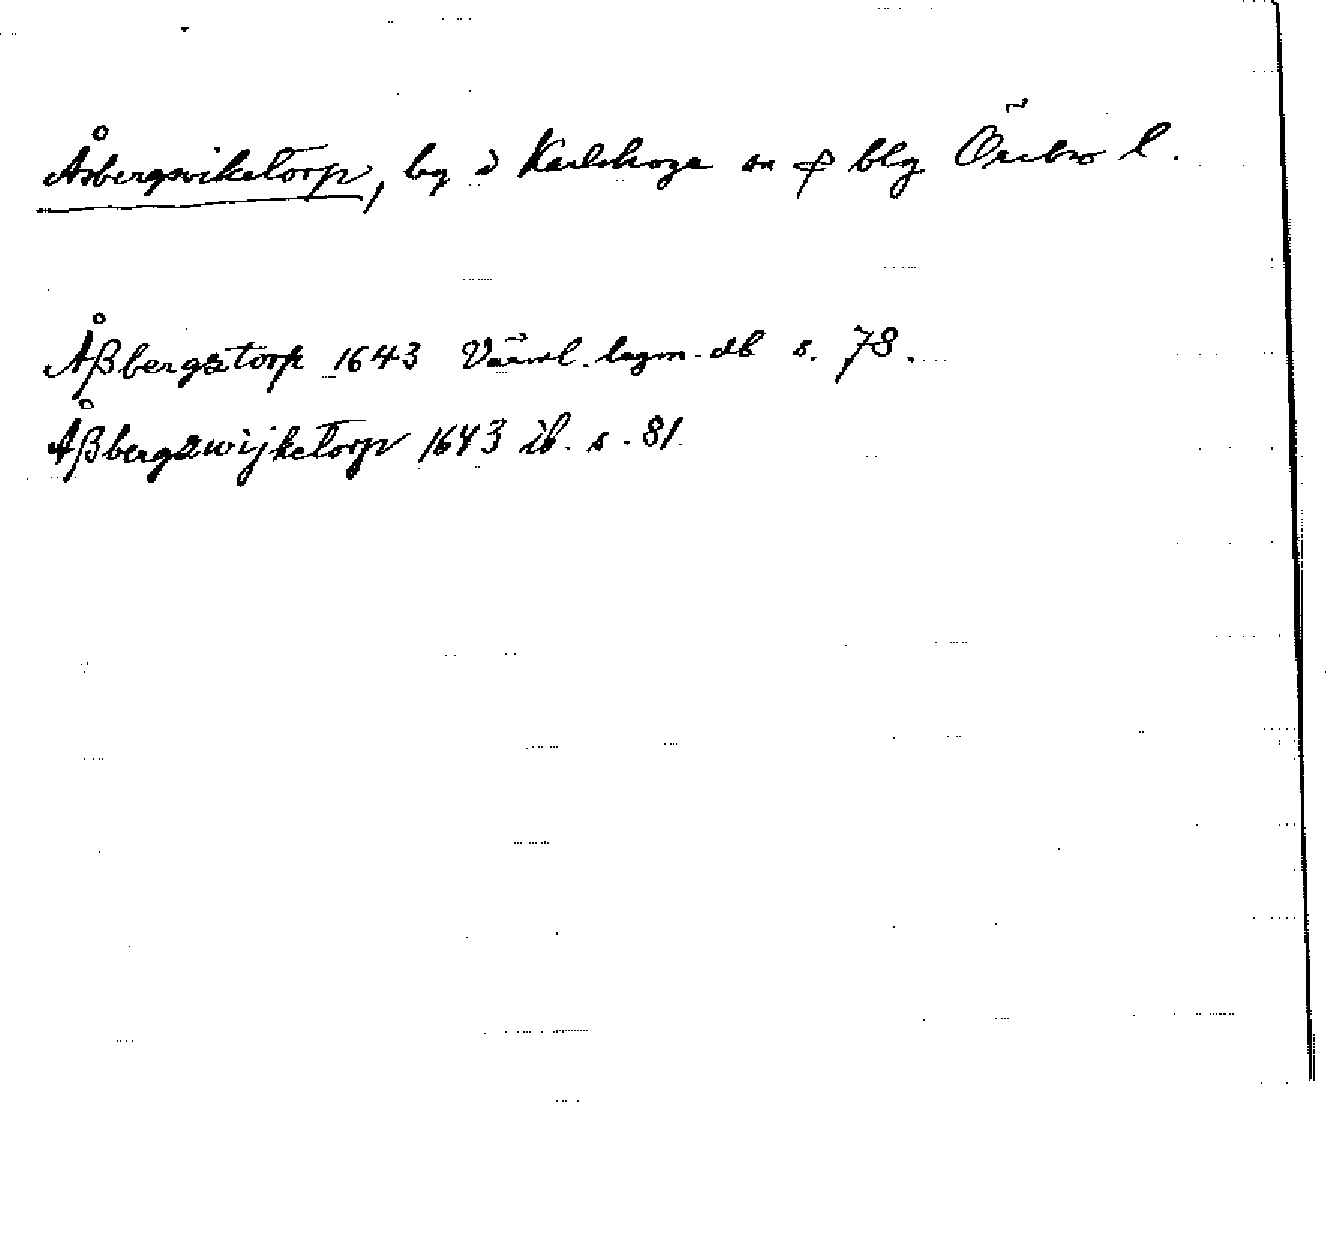 Åsbergsviketorp, by i Karlskoga sn o blg Örebro l.
Åßbergstorp 1643 Värml. lagm. db s. 78.
Åßbergswijketorp 1643 ib. s. 81.